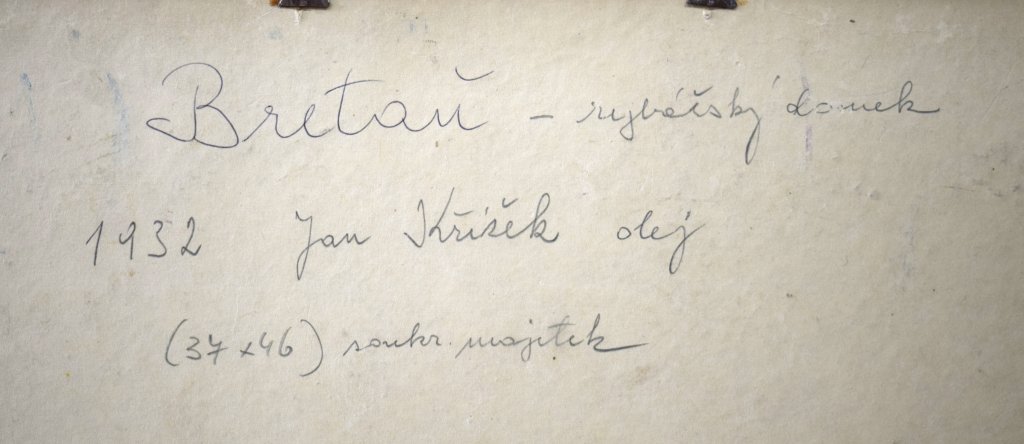 Bretaň - rybářský domek
1932 Jan Křížek olej
(37 x 46) soukr. majetek